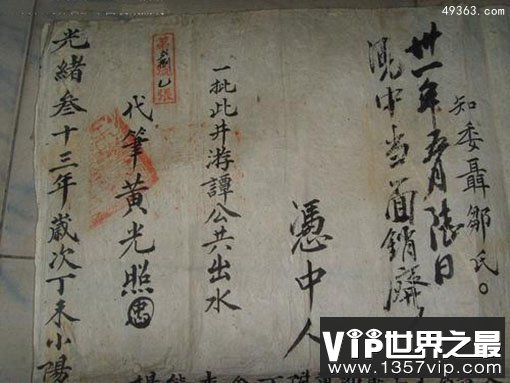 49363.com
知委聶鄒氏。
卅一年五月陸日
中当面銷廢
憑中人
一批此井游譚公共出水
代筆黃光照
光緒叁十三年歲次丁未小陽
VIP世界之最
www.1357vip.com